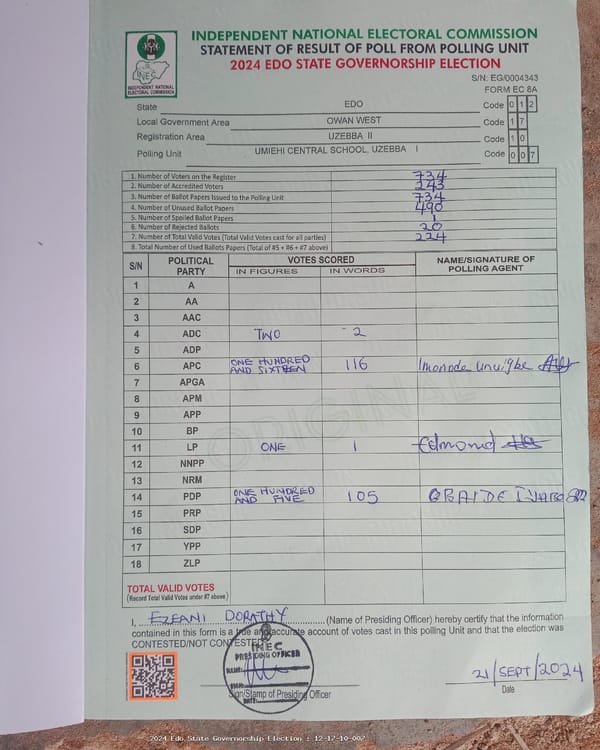 INDEPENDENT NATIONAL ELECTORAL COMMISSION
STATEMENT OF RESULT OF POLL FROM POLLING UNIT
2024 EDO STATE GOVERNORSHIP ELECTION
INEC
INDEPENDENT NATIONAL
ELECTORAL COMMISSION
S/N: EG/0004343
FORM EC 8A
State EDO Code 0 1 2
Local Government Area OWAN WEST Code 1 7
Registration Area UZEBBA II Code 1 0
Polling Unit UMIEHI CENTRAL SCHOOL, UZEBBA I Code 0 0 7
1. Number of Voters on the Register 734
2. Number of Accredited Voters 243
3. Number of Ballot Papers Issued to the Polling Unit 734
4. Number of Unused Ballot Papers 490
5. Number of Spoiled Ballot Papers 1
6. Number of Rejected Ballots 20
7. Number of Total Valid Votes (Total Valid Votes cast for all parties) 224
8. Total Number of Used Ballots Papers (Total of #5 + #6 + #7 above)
S/N POLITICAL PARTY VOTES SCORED NAME/SIGNATURE OF POLLING AGENT
IN FIGURES IN WORDS
1 A
2 AA
3 AAC
4 ADC TWO 2
5 ADP
6 APC ONE HUNDRED AND SIXTEEN 116 Imonode Unuigbe
7 APGA
8 APM
9 APP
10 BP
11 LP ONE 1 Edmond
12 NNPP
13 NRM
14 PDP ONE HUNDRED AND FIVE 105
15 PRP
16 SDP
17 YPP
18 ZLP
ORIGINAL
TOTAL VALID VOTES
(Record Total Valid Votes under #7 above)
I, EZEANI DORATHY (Name of Presiding Officer) hereby certify that the information
contained in this form is a true and accurate account of votes cast in this polling Unit and that the election was
CONTESTED/NOT CONTESTED
INEC
PRESIDING OFFICER
NAME:
SIGN:
DATE:
Sign/Stamp of Presiding Officer
21/SEPT/2024
Date
2024 Edo State Governorship Election : 12-17-10-007